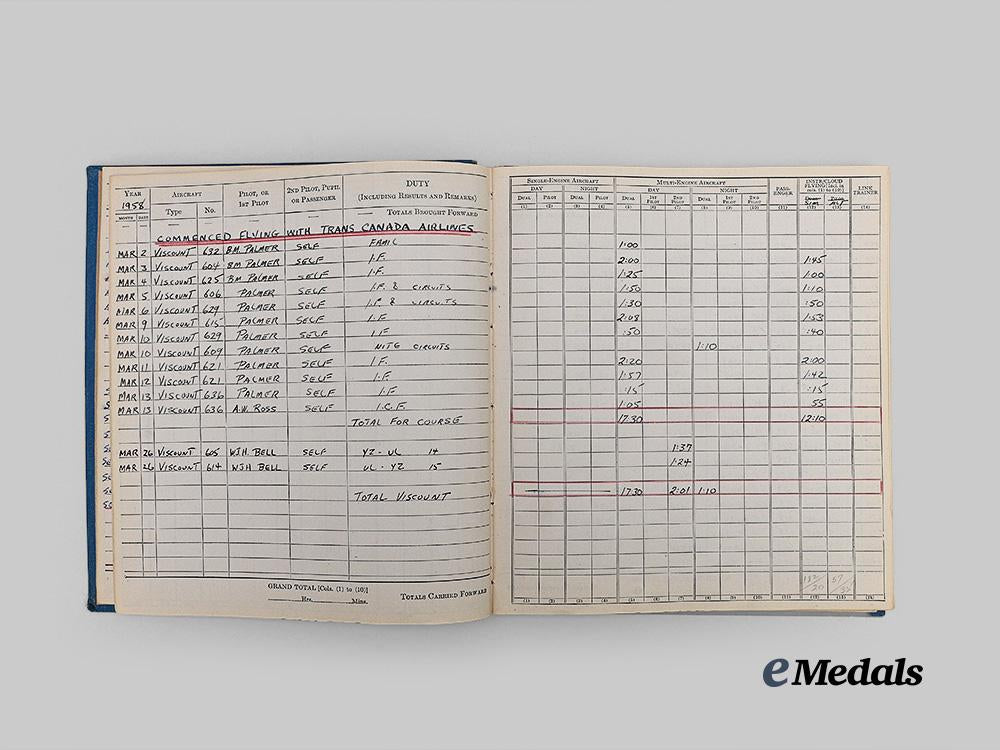 YEAR AIRCRAFT PILOT, OR 1ST PILOT 2ND PILOT, PUPIL OR PASSENGER DUTY (INCLUDING RESULTS AND REMARKS)
1958
MONTH DATE Type No. TOTALS BROUGHT FORWARD
COMMENCED FLYING WITH TRANS CANADA AIRLINES
MAR 2 VISCOUNT 632 BM. PALMER SELF FAMIL
MAR 3 VISCOUNT 604 BM PALMER SELF I.F.
MAR 4 VISCOUNT 625 BM PALMER SELF I.F.
MAR 5 VISCOUNT 606 PALMER SELF I.F. & CIRCUITS
MAR 6 VISCOUNT 629 PALMER SELF I.F & CIRCUITS
MAR 9 VISCOUNT 615 PALMER SELF I.F
MAR 10 VISCOUNT 629 PALMER SELF I.F
MAR 10 VISCOUNT 609 PALMER SELF NITE CIRCUITS
MAR 11 VISCOUNT 621 PALMER SELF I.F.
MAR 12 VISCOUNT 621 PALMER SELF I.F.
MAR 13 VISCOUNT 636 PALMER SELF I.F
MAR 13 VISCOUNT 636 A.W. ROSS SELF I.C.F.
TOTAL FOR COURSE
MAR 26 VISCOUNT 605 W.J.H. BELL SELF YZ - UL 14
MAR 26 VISCOUNT 614 WJH BELL SELF UL - YZ 15
TOTAL VISCOUNT
GRAND TOTAL [Cols. (1) to (10)]
Hrs. Mins.
TOTALS CARRIED FORWARD
SINGLE-ENGINE AIRCRAFT MULTI-ENGINE AIRCRAFT PASSENGER INSTR/CLOUD FLYING [Incl. in cols. (1) to (10)] LINK TRAINER
DAY NIGHT DAY NIGHT
DUAL PILOT DUAL PILOT DUAL 1ST PILOT 2ND PILOT DUAL 1ST PILOT 2ND PILOT
(1) (2) (3) (4) (5) (6) (7) (8) (9) (10) (11) (12) (13) (14)
1:00
2:00 1:45
1:25 1:00
1:50 1:10
1:30 :50
2:08 1:53
:50 :40
1:10
2:20 2:00
1:57 1:42
:15 :15
1:05 55
17:30 12:10
1:37
1:24
17:30 2:01 1:10
(1) (2) (3) (4) (5) (6) (7) (8) (9) (10) (11) (12) (13) (14)
eMedals